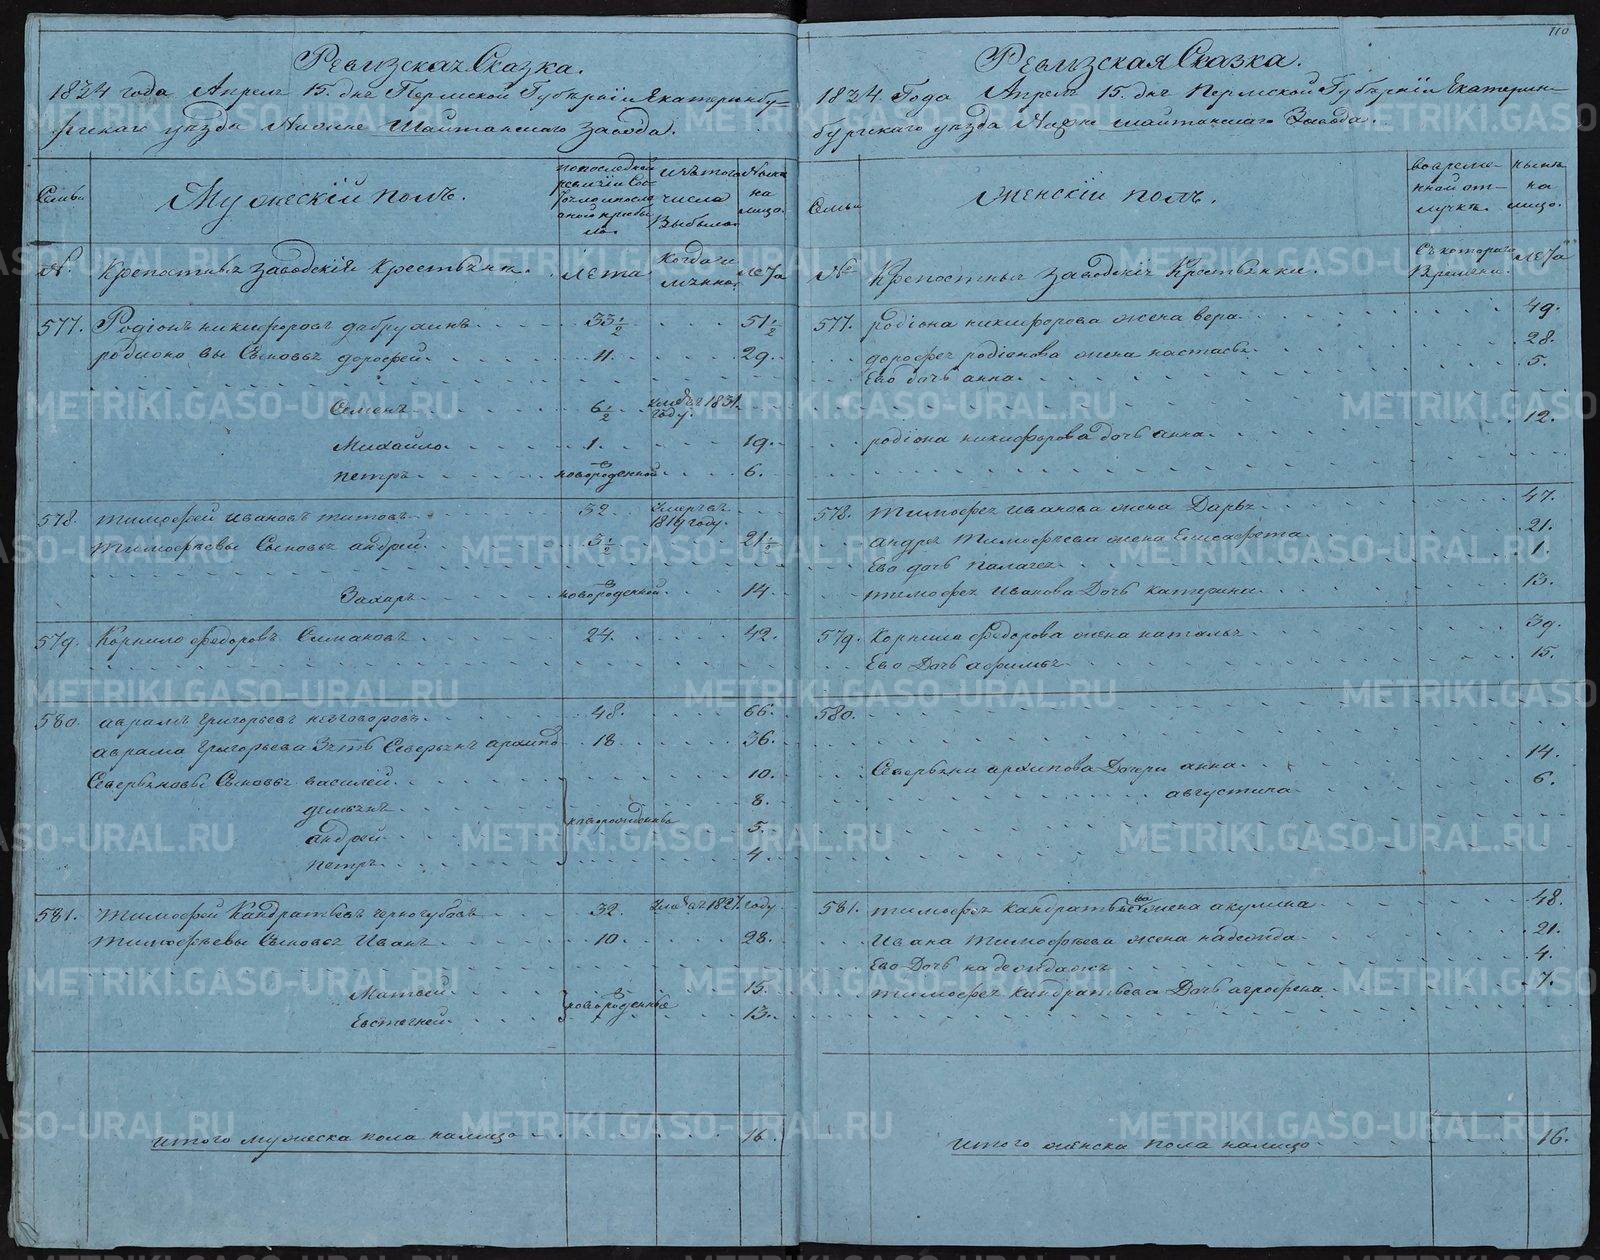 Ревизская Сказка.
1834 года Апреля 15. дня Пермской Губернiи Екатеринбу-
ргскаго уезда Нижне Шайтанскаго Завода.
Семьи
Мужескiй полъ.
по последней ревизiи состояло и после оной прибыло
изъ того числа Выбыло
Ныне на лицо
№.
Крепостныя заводскiя крестьяня.
лета
Когда и
лета
577. Родiонъ никифоровъ 33½ 51½
родионовы Сыновья дорофей 11. 29.
Семенъ 6½ 1831. году.
Михайло 1. 19.
петръ новорожденной 6.
578. тимофей ивановъ титовъ 52. Умеръ въ 1819 году.
тимофеевы Сыновья андрей 3½ 21½
Захаръ новорожденной 14
579. Корнило федоровъ Симановъ 24. 42.
580. аврамъ григорьевъ 48. 66.
аврама григорьева Зять Северьянъ 18 36.
Северьяновы Сыновья василей 10.
демьянъ 8.
андрей новорожденные 5.
петръ 4.
581. тимофей Кандратьевъ черногубовъ 32. 1821. году
тимофеевы Сыновья Иванъ 10. 28.
Матвей новорожденные 15.
Евстегней 13.
итого мужеска пола налицо 16.
110
Ревизская Сказка.
1834. Года Апреля 15. дня Пермской Губернiи Екатерин-
бургскаго уезда Нижне шайтанскаго Завода.
Семьи
женскiй полъ.
во временной отлучке.
ныне на лицо.
№
Крепостныя заводскiя Крестьянки.
Съ котораго времени.
лета
577. родiона никифорова жена вера 49.
дорофея родiонова жена настасья 28.
Ево дочь анна 5.
родiона никифорова дочь анна 12.
578. тимофея иванова жена Дарья 47.
андрея тимофеева жена Елисафета 21.
Ево дочь палагея 1.
тимофея иванова Дочь катерина 13.
579. Корнила федорова жена наталья 39.
Ево Дочь афимья 15.
580.
Северьяна архипова Дочери анна 14
августина 6.
581. тимофея кандратьева жена акулина 48.
Ивана тимофеева жена надежда 21.
Ево Дочь 4.
тимофея кандратьева Дочь агрофена 7.
итого женска пола налицо 16.
METRIKI.GASO-URAL.RU